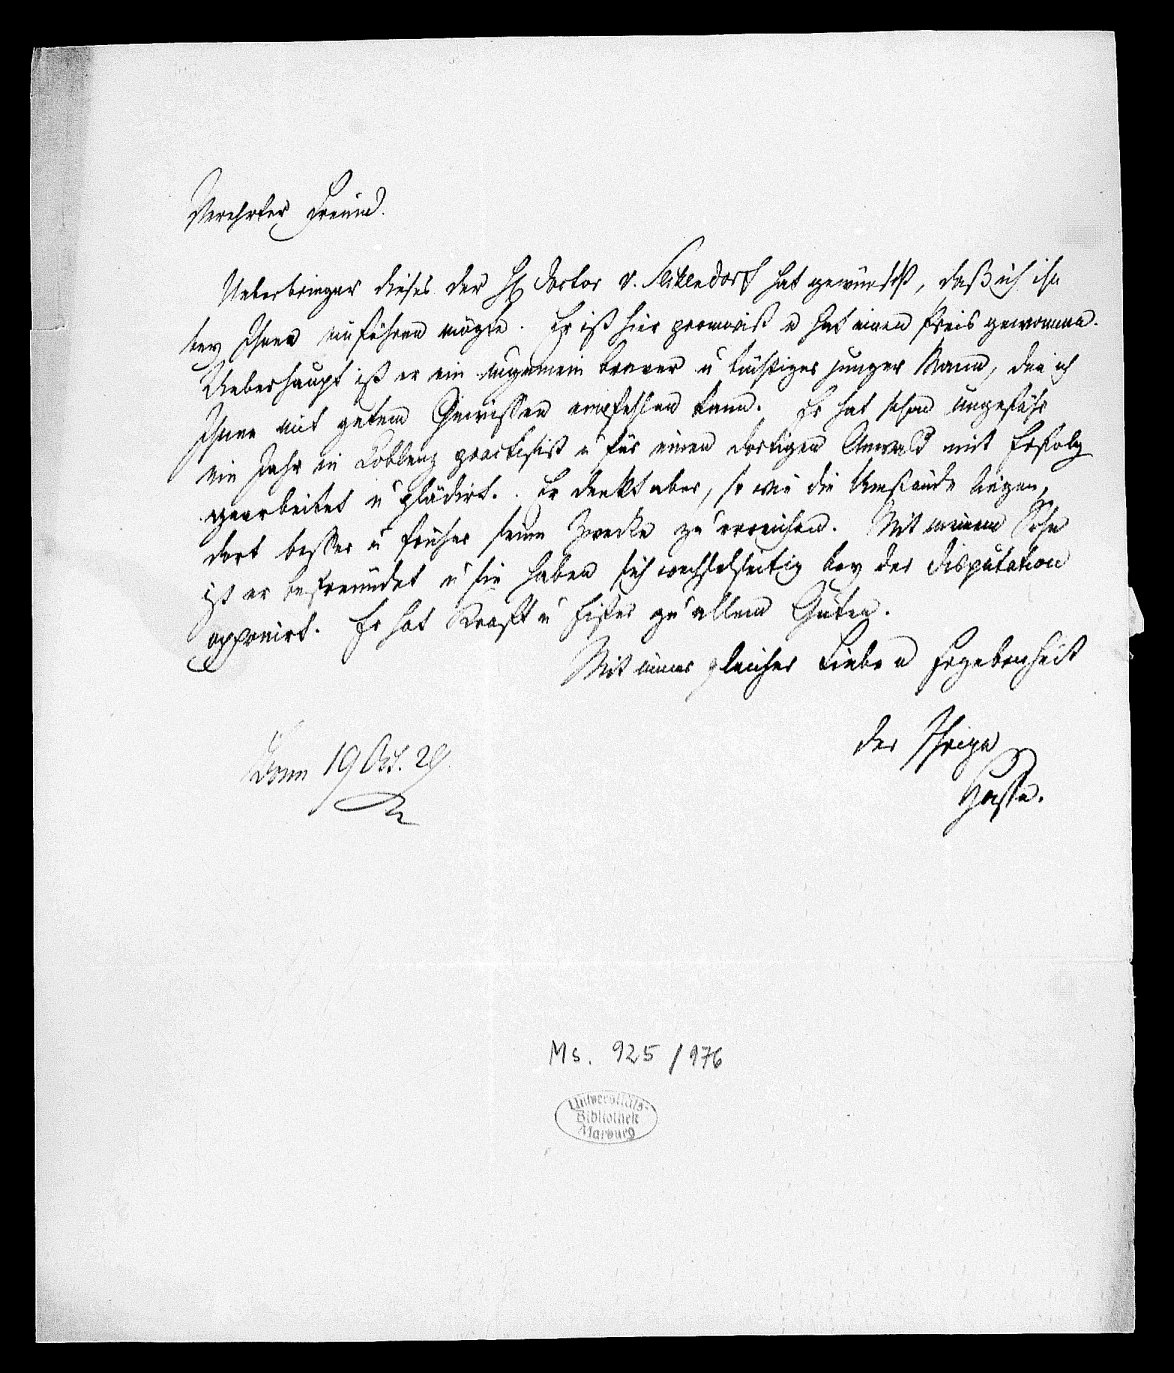 Verehrter Freund.
Ueberbringer dieses der H Doctor v. Seckendorf hat gewünscht, daß ich ihn
bey Ihnen einführen mögte. Er ist hier promovirt u hat einen Preis gewonnen.
Ueberhaupt ist er ein ungemein braver u tüchtiger junger Mann, den ich
Ihnen mit gutem Gewissen empfehlen kann. Er hat schon ungefähr
ein Jahr in Coblenz practisirt u für einen dortigen Anwald mit Erfolg
gearbeitet u plädirt. Er denkt aber, so wie die Umstände liegen,
dort besser u früher seine Zwecke zu erreichen. Mit meinem Sohn
ist er befreundet u sie haben sich wechselseitig bey der Disputation
opponirt. Er hat Kraft u Eifer zu allem Guten.
Mit immer gleicher Liebe u Ergebenheit
der Ihrige
Hasse.
Bonn 19 Oct. 29.
Ms. 925/976
Universitäts-
Bibliothek
Marburg